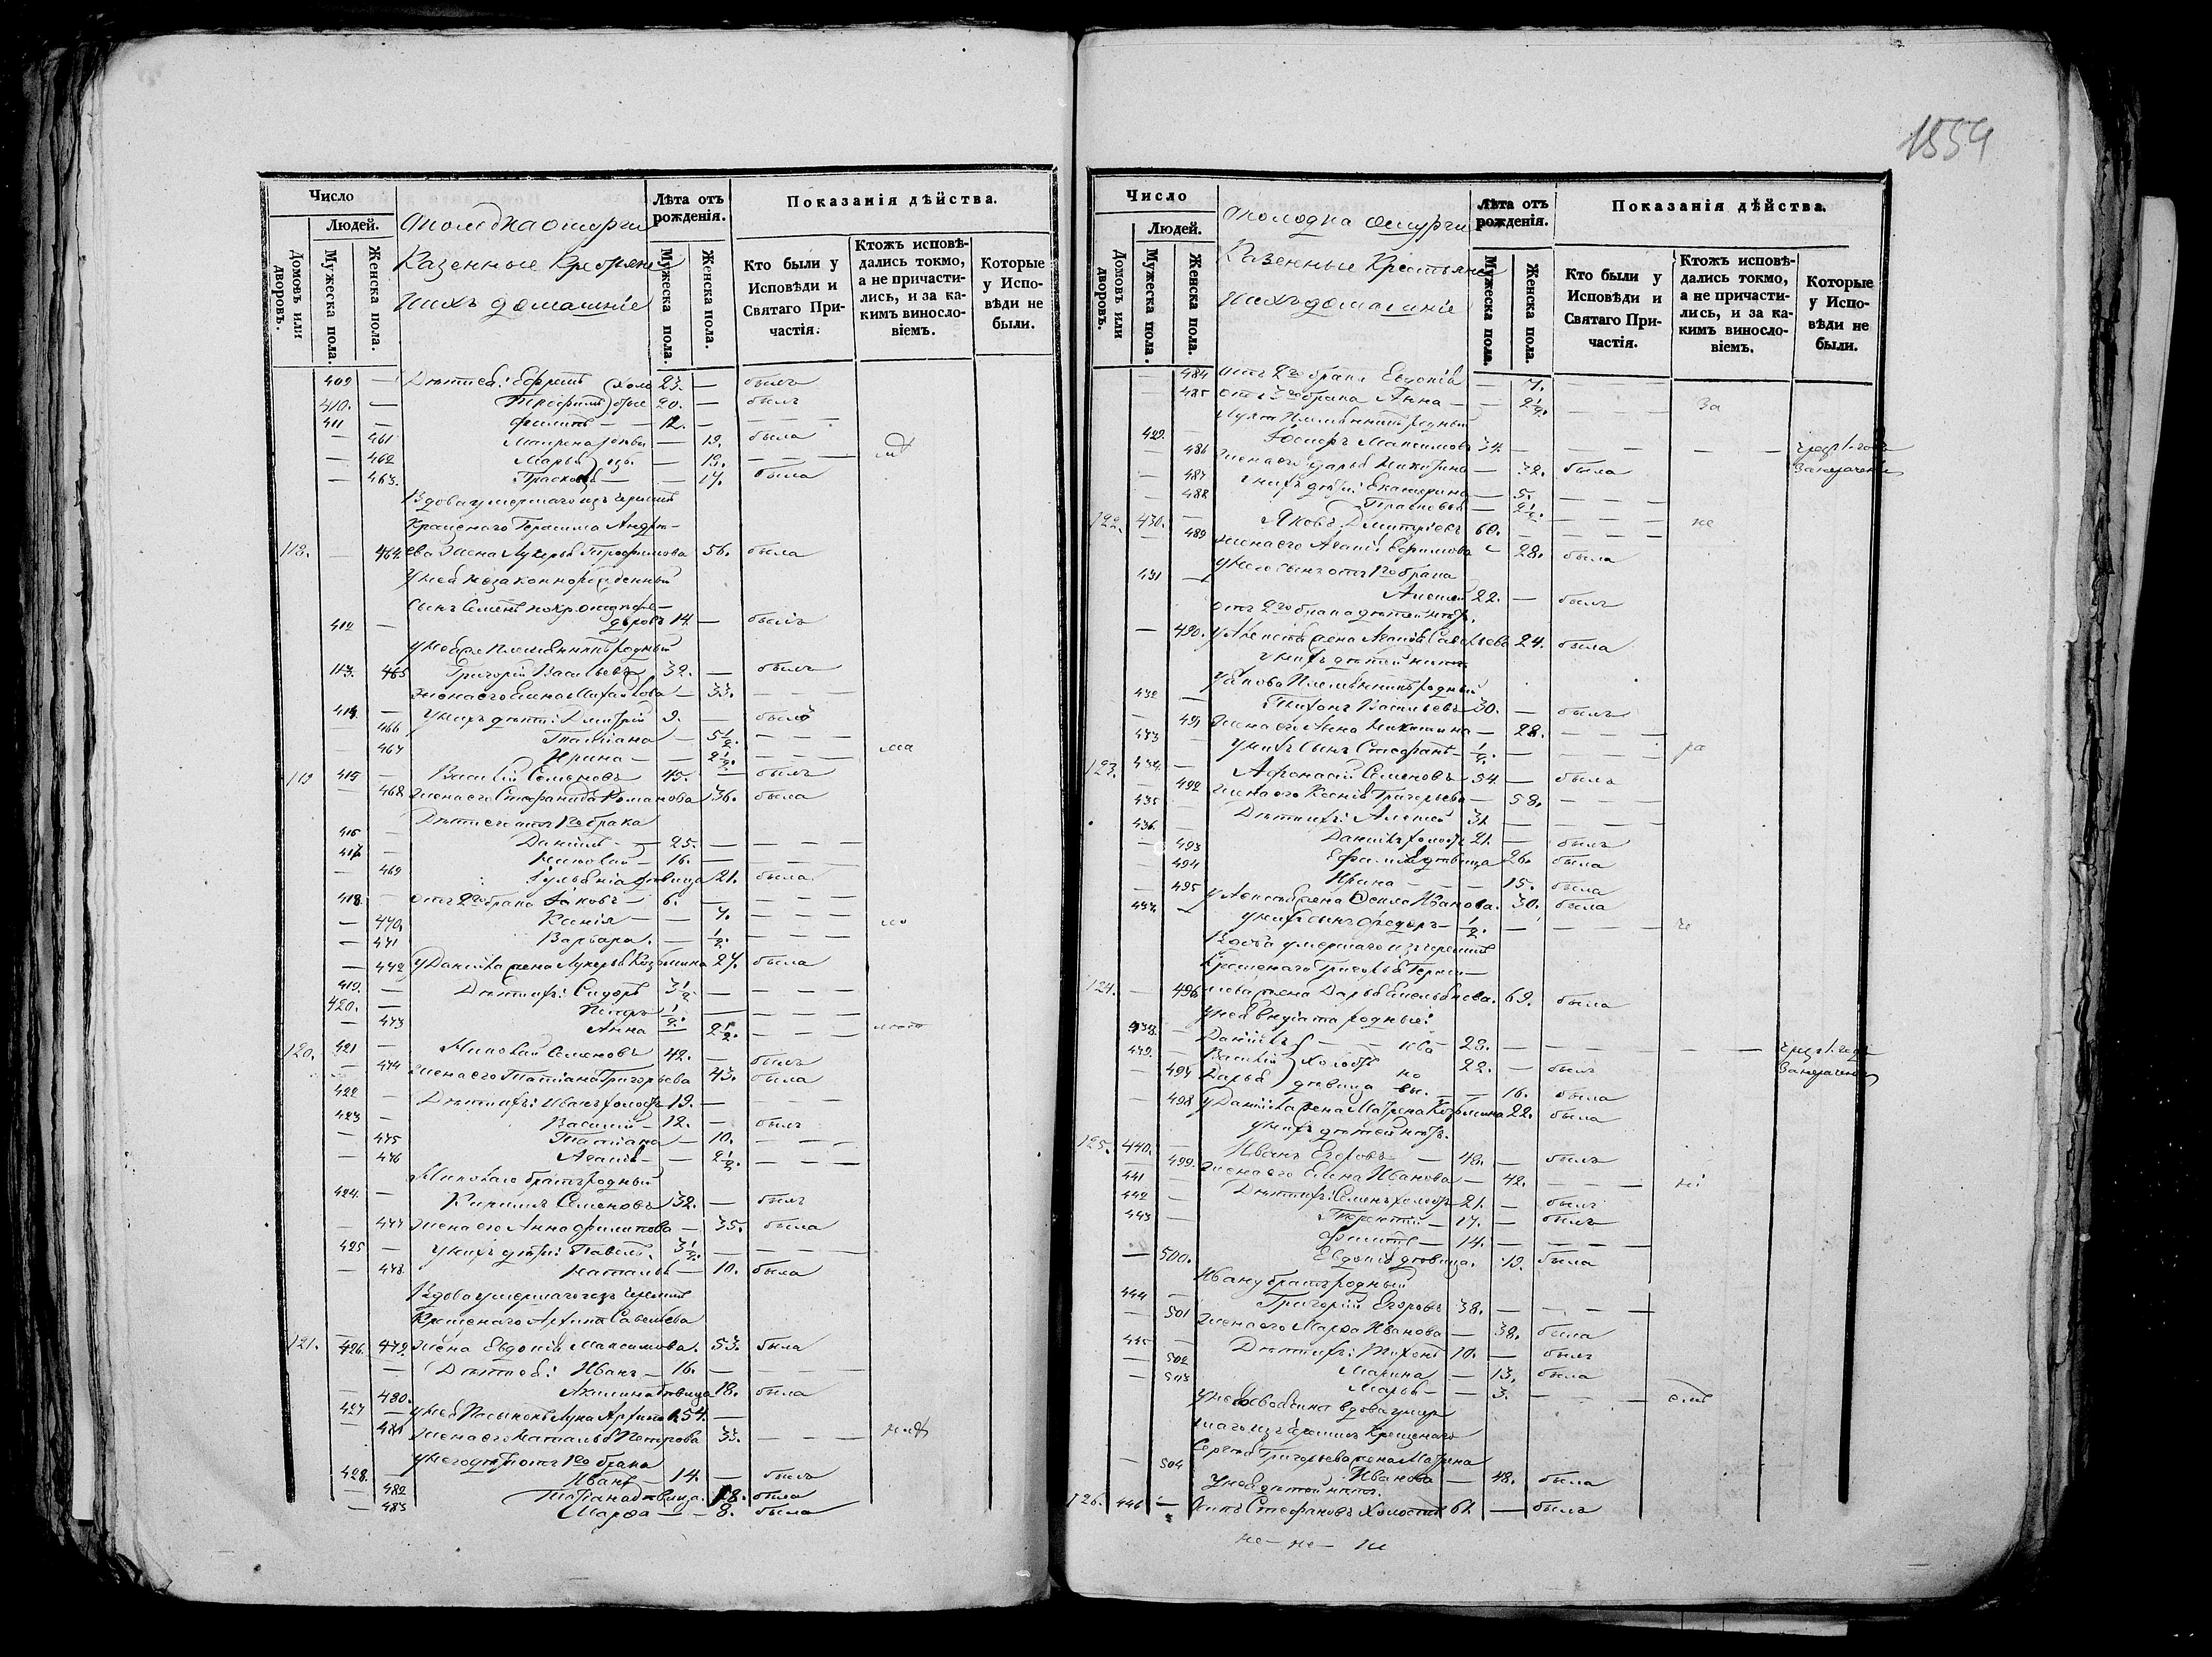 1554
Число
Людей.
Домовъ или дворовъ.
Мужеска пола.
Женска пола.
Казенные Крестьяне
ихъ домашніе
Лѣта отъ рожденія.
Мужеска пола.
Женска пола.
Показанія дѣйства.
Кто были у Исповѣди и Святаго Причастія.
Ктожъ исповѣдались токмо, а не причастились, и за какимъ винословіемъ.
Которые у Исповѣди не были.
409 — Ефремъ 23. — былъ
410. — 20. — былъ
411 — Филипъ — 12. — — —
— 461 — 19. была
— 462 Марья — 13. — —
— 463. Прасковья — 17. была
Вдова умершаго изъ
Крещенаго Герасима Андрѣ-
112. — 464. ева жена Лукерья Трофимова 56. была
У ней незаконнорожденный
сынъ Семенъ
412 — 14. — былъ
племянникъ родный
413. 465 Григорій Васильевъ 32. — былъ
жена его Елена Михайлова — 33. — — —
414. — У нихъ дѣти: Дмитрій 9. — былъ
466 Татіана — 5 1/2. — — —
— 467 Ирина — — 2 1/2. — — —
119 415 — Василій Семеновъ 45. — былъ
— 468 жена его Стефанида Романова 36. была
Дѣти его отъ 1го брака
416 — Даніилъ — 25. — — — —
417 — Николай — 16. — — — —
— 469 Іуліанія дѣвица 21. была
418. — отъ 2го брака Іаковъ — 6. — — — —
— 470. Ксенія — — 7. — — —
— 471 Варвара. — 1/2. — — —
— 472 у Даніила жена Лукерья Козьмина 27. была
419. — Дѣти ихъ: Сидоръ 3 1/2 — — — —
420. — Петръ 1/2. — — — —
— 473 Анна — 2 1/2. — — —
120. 421 — Николай Семеновъ 42. — былъ
— 474 жена его Татіана Григорьева 43. была
422 — Дѣти ихъ: Иванъ холостъ 19. — — —
423 — Василій — 12. — былъ
— 475 Татіана — 10. — — —
— 476 Агапія — 2 1/2. — — —
Николаю братъ родный
424. — Кирилъ Семеновъ 32. — былъ
— 477 жена его Анна Филипова — 35. была
425 — У нихъ дѣти: Павелъ. 3 1/2. — — — —
— 478. Наталья — 10. была
Вдова умершаго изъ
Крещенаго Архипа Савельева
121. — 479. жена Евдокія Максимова. 53. была
426. — Дѣти ея: Иванъ — 16. — — — —
— 480. Акилина дѣвица 18. была
427 — у ней пасынокъ Лука Архиповъ 54. —
— 481 жена его Наталья Петрова 33. — — —
У него дѣти отъ 1го брака
428. — Иванъ — 14. — былъ
— 482 Татіана дѣвица. 18. была
— 483 Марѳа — — 8. была
Число
Людей.
Домовъ или дворовъ.
Мужеска пола.
Женска пола.
Казенные Крестьяне
ихъ домашніе
Лѣта отъ рожденія.
Мужеска пола.
Женска пола.
Показанія дѣйства.
Кто были у Исповѣди и Святаго Причастія.
Ктожъ исповѣдались токмо, а не причастились, и за какимъ винословіемъ.
Которые у Исповѣди не были.
— 484 отъ 2го брака Евдокія — 7. — — —
— 485 отъ 3го брака Анна — — 2 1/2. — — — за
Луки племянникъ родный
429. Ѳедоръ Максимовъ 34. — — — — —
— 486 жена его Дарья Никитина — 32. была
— 487 у нихъ дѣти: Екатерина — 5. — — —
— 488 Прасковья — 2 1/2. — — —
122. 430. — Яковъ Дмитріевъ 60. — — — — не
— 489 жена его Агапія Ефимова — 28. была
431 — у него сынъ отъ 1го брака
Алексѣй 22. — былъ
отъ 2го брака дѣтей нѣтъ.
— 490. у Алексѣя жена Агапія Савельева 24. была
у нихъ дѣтей нѣтъ
Якова племянникъ родный
432 — Тихонъ Васильевъ 30. — былъ
— 491 жена его Анна Никитина — 28. — — —
433 у нихъ сынъ Стефанъ — 1/2. — — — — ра
123. 434. — Афонасій Семеновъ 54 — былъ
— 492 жена его Ксенія Григорьева — 58. — — —
435 — Дѣти ихъ: Алексѣй 31 — — — —
436. — Даніилъ холостъ 21. — былъ
— 493 дѣвица 26. была
— 494 Ирина — — 15. была
— 495 у Алексѣя жена Ѳекла Иванова. 30. была
437. — у нихъ сынъ Ѳедоръ — 1/2. — — — —
Вдова умершаго изъ
Крещенаго Григорья
124. — 496 жена Дарья Емельянова. 69. была
у ней внучата родные:
438. — Даніилъ 28. — — — —
439. — Василій холостъ 22. — былъ
— 497 Дарья дѣвица — — 16. была
— 498 у Даніила жена Матрена Козьмина 22. была
у нихъ дѣтей нѣтъ.
125. 440. — Иванъ Егоровъ — 48. — былъ
— 499. жена его Елена Иванова — 42. — — —
441 — Дѣти ихъ: Семенъ холостъ 21. — былъ
442 — Терентій — 17. — былъ
443 — Филипъ — 14. — — — —
— 500. Евдокія дѣвица. 19. была
Ивану братъ родный
444 — Григорій Егоровъ 38. — — — —
— 501 жена его Марѳа Иванова — 38. была
445 — Дѣти ихъ: Тихонъ 10. — былъ
— 502 Марина — 13. была
— 503 Марья — — 3. — — —
вдова умер
шаго изъ Крещенаго
Сергѣя Григорьева жена Матрена
— 504 Иванова — 48. была
у ней дѣтей нѣтъ.
126. 446 — Осипъ Стефановъ Холостъ 61. — былъ